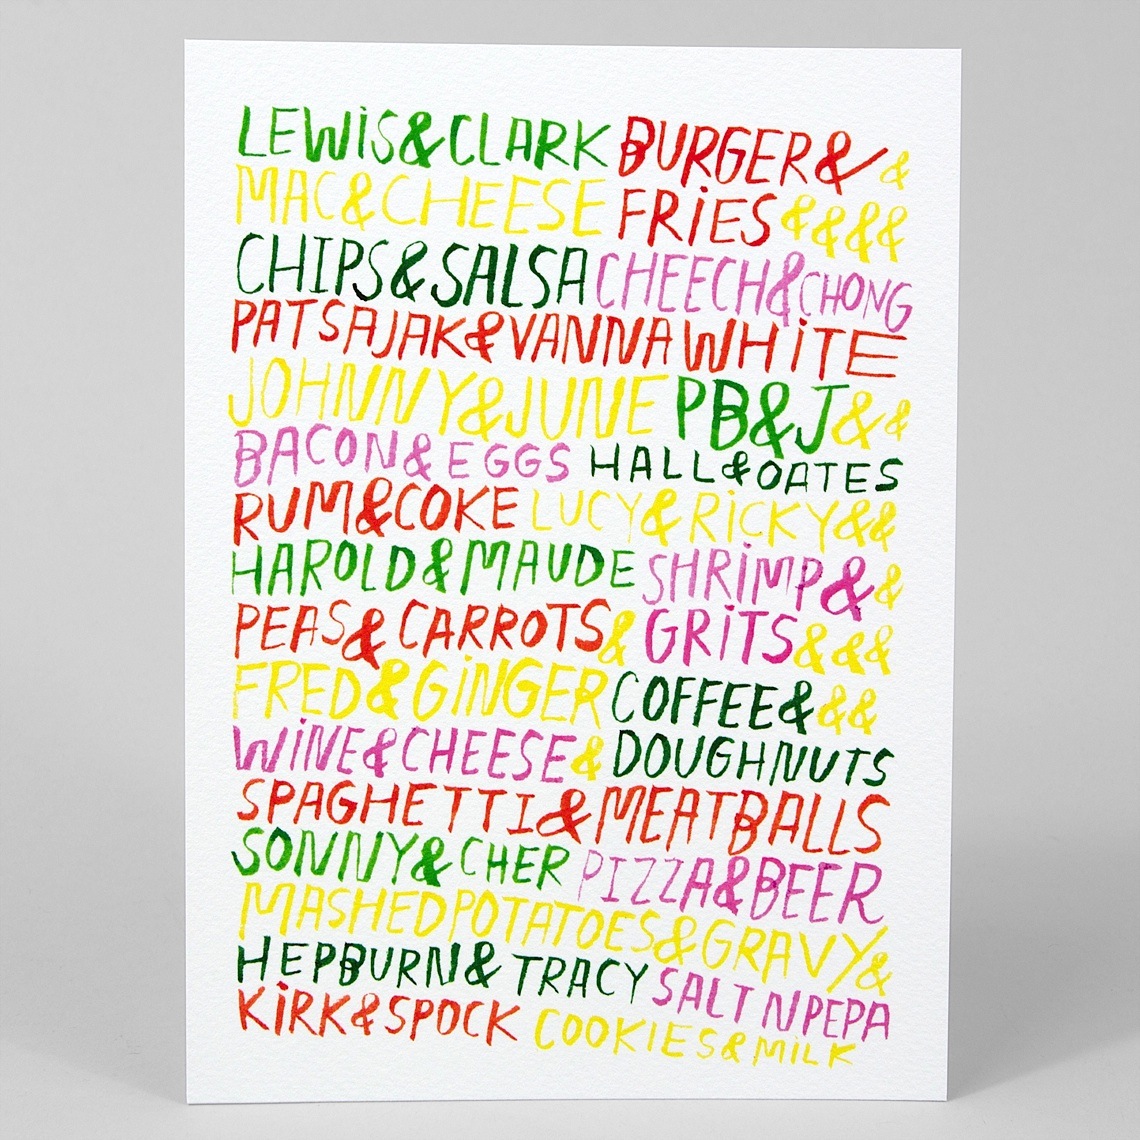 LEWiS&CLARK BURGER& &
MAC&CHEESE FRiES &&&&
CHIPS&SALSA CHEECH&CHONG
PAT SAJAK&VANNA WHiTE
JOHNNY&JUNE PB&J&&
BACON&EGGS HALL&OATES
RUM&COKE LUCY&RiCKY&&
HAROLD&MAUDE SHRiMP&&
PEAS&CARROTS& GRiTS&&&
FRED&GiNGER COFFEE&&&
WiNE&CHEESE& DOUGHNUTS
SPAGHETTI&MEATBALLS
SONNY&CHER PIZZA&BEER
MASHED POTATOES&GRAVY&
HEPBURN&TRACY SALT N PEPA
KiRK&SPOCK COOKIES&MiLK